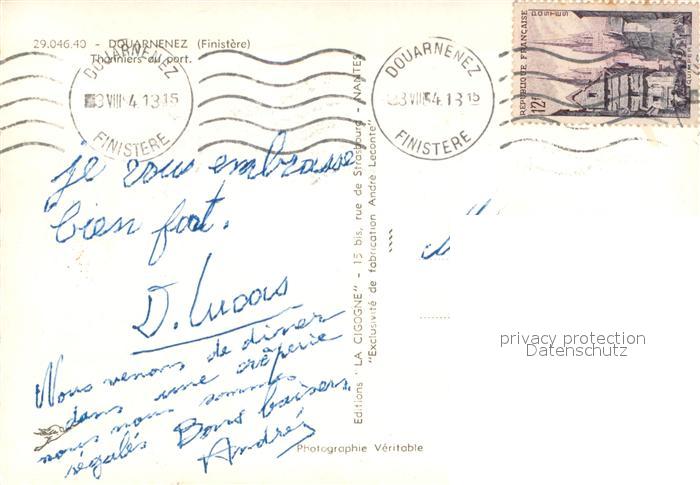 29.046.40 - DOUARNENEZ (Finistère)
Thonniers au port.
DOUARNENEZ
3 VIII 54. 13 15
FINISTERE
DOUARNENEZ
3 VIII 54. 13 15
FINISTERE
REPUBLIQUE FRANÇAISE
POSTES
12F
je vous embrasse
bien fort.
D. Lucas
Nous venons de diner
dans une crêperie
nous nous sommes
régalés Bons baisers
Andrée
Editions "LA CIGOGNE" - 15 bis, rue de Strasbourg - NANTES
"Exclusivité de fabrication André Leconte"
Photographie Véritable
privacy protection
Datenschutz